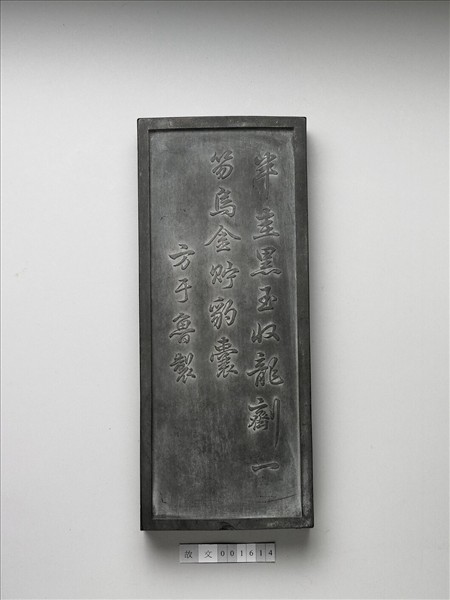 半圭黑玉收龍劑一
笏烏金貯豹囊
方于魯製
故文001614